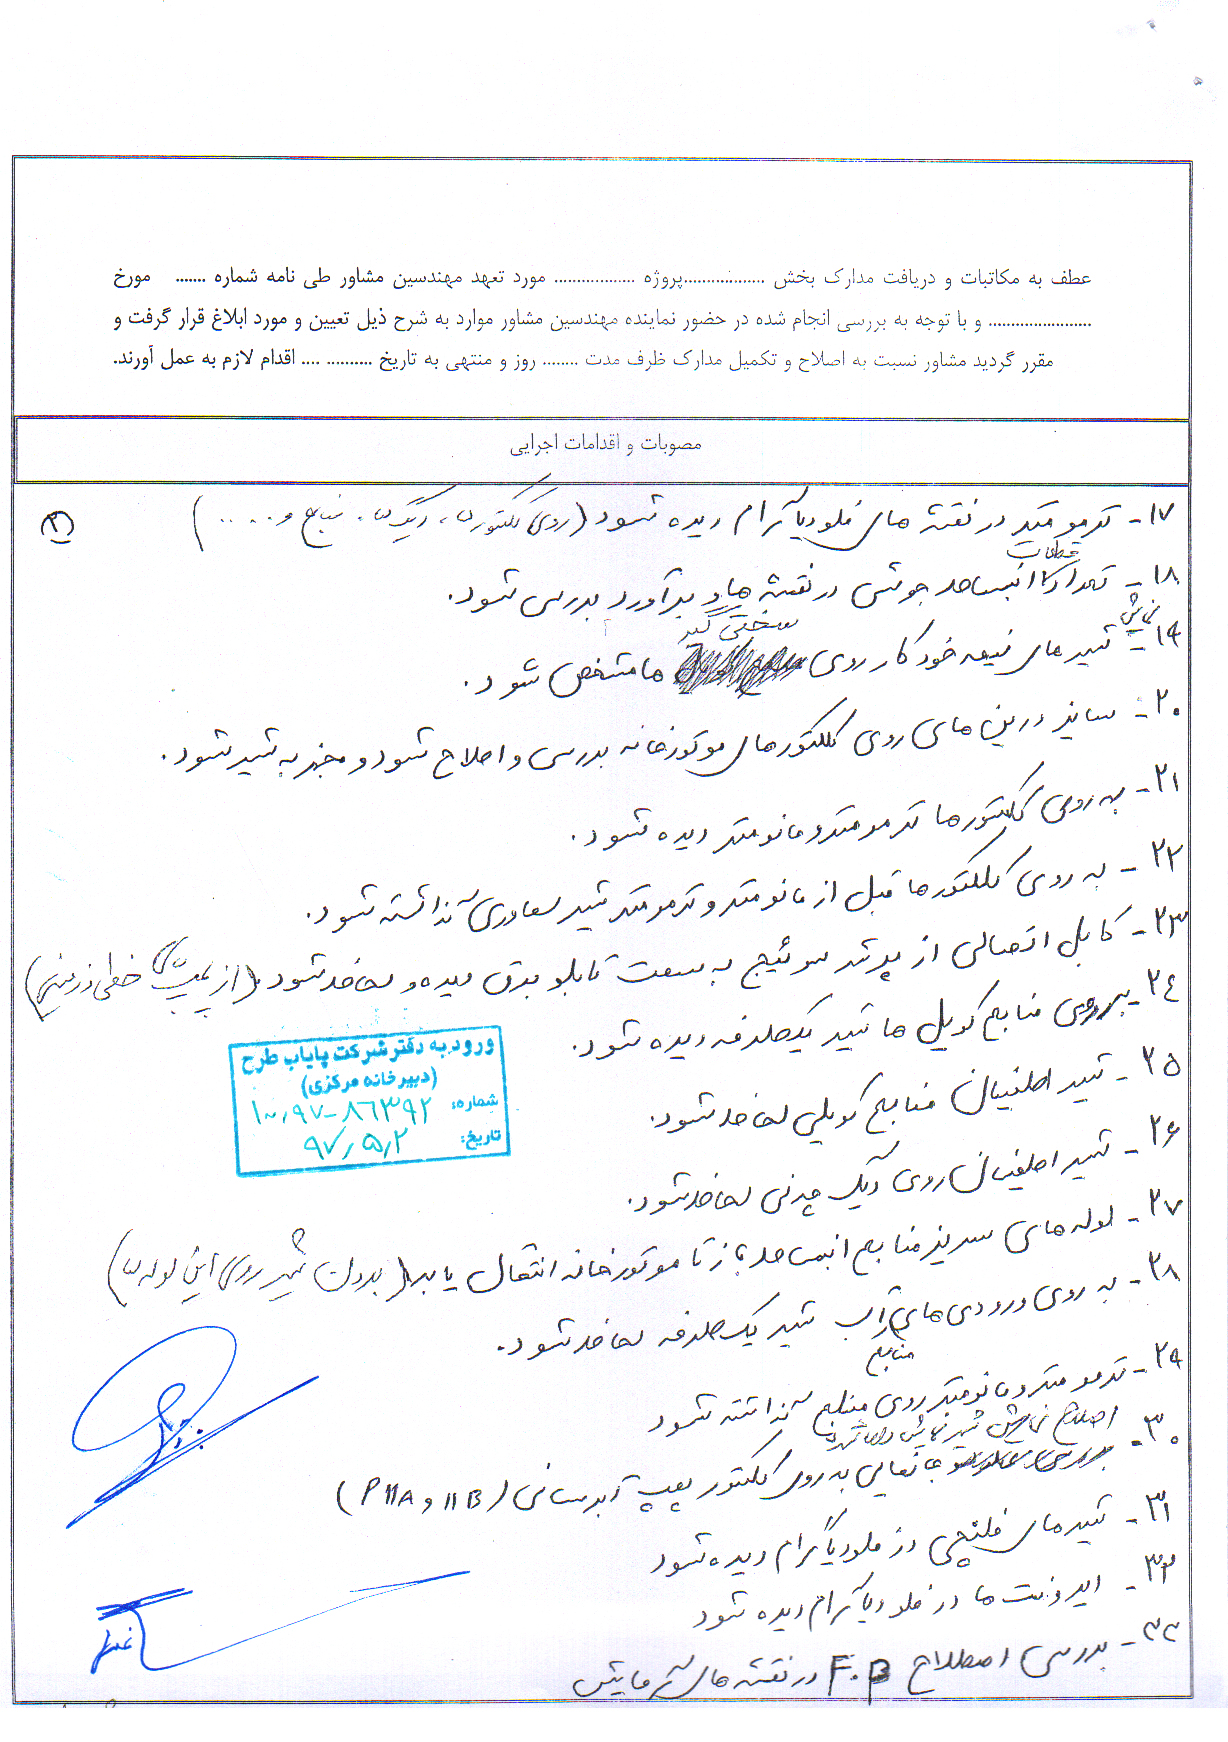 عطف به مکاتبات و دریافت مدارک بخش ..................پروژه .................. مورد تعهد مهندسین مشاور طی نامه شماره ....... مورخ
....................... و با توجه به بررسی انجام شده در حضور نماینده مهندسین مشاور موارد به شرح ذیل تعیین و مورد ابلاغ قرار گرفت و
مقرر گردید مشاور نسبت به اصلاح و تکمیل مدارک ظرف مدت ........ روز و منتهی به تاریخ .......... .... اقدام لازم به عمل آورند.
مصوبات و اقدامات اجرایی
۱۷- ترمومتر در نقشه های فلودیاگرام دیده شود (روی کلکتورها، دیگ ها، منابع و ....)
قطعات
۱۸- تعداد انبساط جوشی در نقشه ها و برآورد بررسی شود.
نمایش
سختی گیر
۱۹- شیرهای نیمه خودکار روی ها مشخص شود.
۲۰- سایز درین های روی کلکتورهای موتورخانه بررسی و اصلاح شود و مجهز به شیر شود.
۲۱- به روی کلکتورها ترمومتر و مانومتر دیده شود.
۲۲- به روی کلکتورها قبل از مانومتر و ترمومتر شیر سماوری گذاشته شود.
۲۳- کابل اتصالی از پرشر سوئیچ به سمت تابلو برق دیده و لحاظ شود (از پمپ های خطی زمینی)
۲۴- بر روی منابع کویل ها شیر یکطرفه دیده شود.
۲۵- شیر اطمینان منابع کویلی لحاظ شود.
۲۶- شیر اطمینان روی دیگ چدنی لحاظ شود.
۲۷- لوله های سرریز منابع انبساط باز تا موتورخانه انتقال یابد (بدون شیر روی این لوله ها)
۲۸- به روی ورودی های آب شیر یکطرفه لحاظ شود.
منابع
۲۹- ترمومتر و مانومتر روی منابع گذاشته شود
اصلاح نمایش شیر نمایش داده شده
۳۰- جانمایی به روی کلکتور پمپ آبرسانی (P11A و 11B)
۳۱- شیرهای فلنچی در فلودیاگرام دیده شود
۳۲- ایرونت ها در فلودیاگرام دیده شود
۳۳- بررسی اصطلاح F.B در نقشه های گرمایش
ورود به دفتر شرکت پایاب طرح
(دبیرخانه مرکزی)
شماره: ۱۰۰,۹۷-۸۶۳۹۲
تاریخ: ۹۷,۵,۲